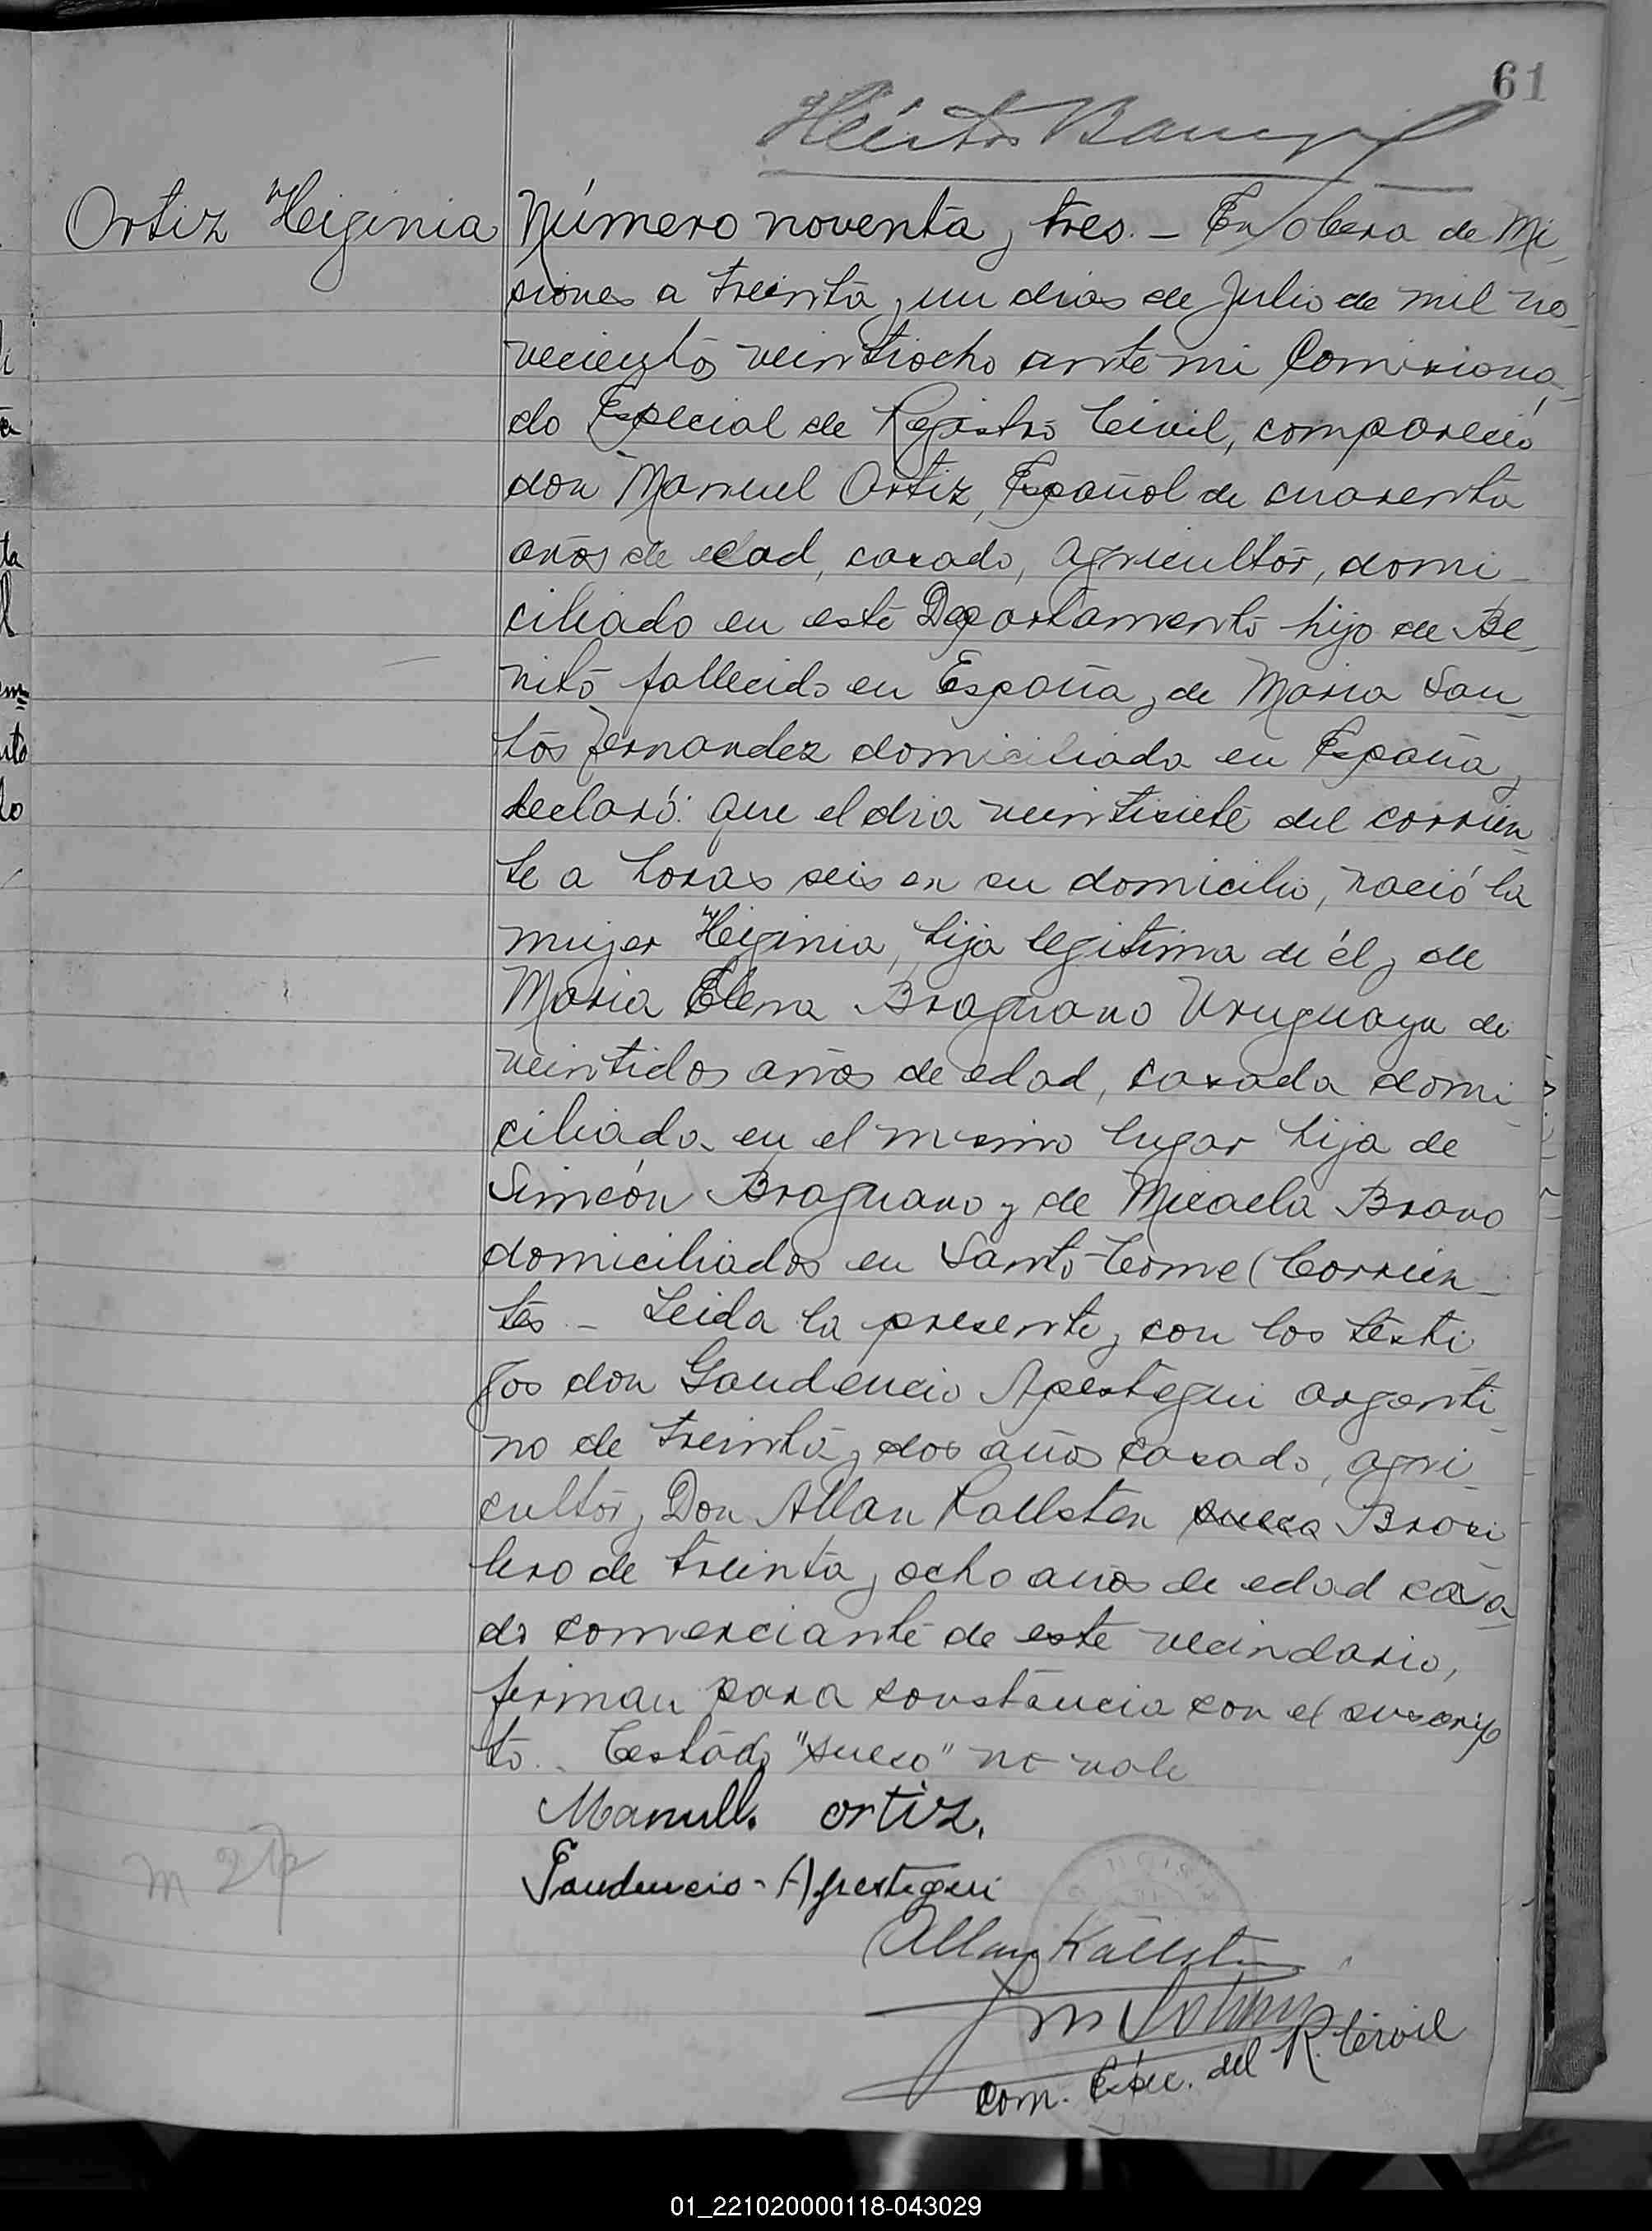 61
Héctor
Ortiz Heiginia
Número noventa y tres. - En Obera de Mi-
siones a treinta y un dias de Julio de mil no-
vecientos veintiocho ante mi Comisiona-
do Especial de Registro Civil, compareció
don Manuel Ortiz, Español de cuarenta
años de edad, casado, agricultor, domi-
ciliado en este Departamento hijo de Be-
nito fallecido en España y de Maria San-
tos Fernandez domiciliada en España y
declaró: que el dia veintisiete del corrien-
te a horas seis en su domicilio, nació la
mujer Heiginia, hija legitima de él y de
Maria Elena Braguano Uruguaya de
veintidos años de edad, casada domi-
ciliada en el mismo lugar hija de
Simeón Braguano y de Micaela Bravo
domiciliados en Santo Tome (Corrien-
tes - Leida la presente y con los testi-
gos don Gaudencio Apestegui argenti-
no de treinta y dos años casado, agri-
cultor y Don Allan Kallsten sueco Brasi-
lero de treinta y ocho años de edad casa-
do comerciante de este vecindario,
firman para constancia con el suscrip-
to. Testado "sueco" no vale
Manuel. ortiz.
Gaudencio - Apestegui
Allan Källsten
Com. Espec. del R. Civil
01_221020000118-043029